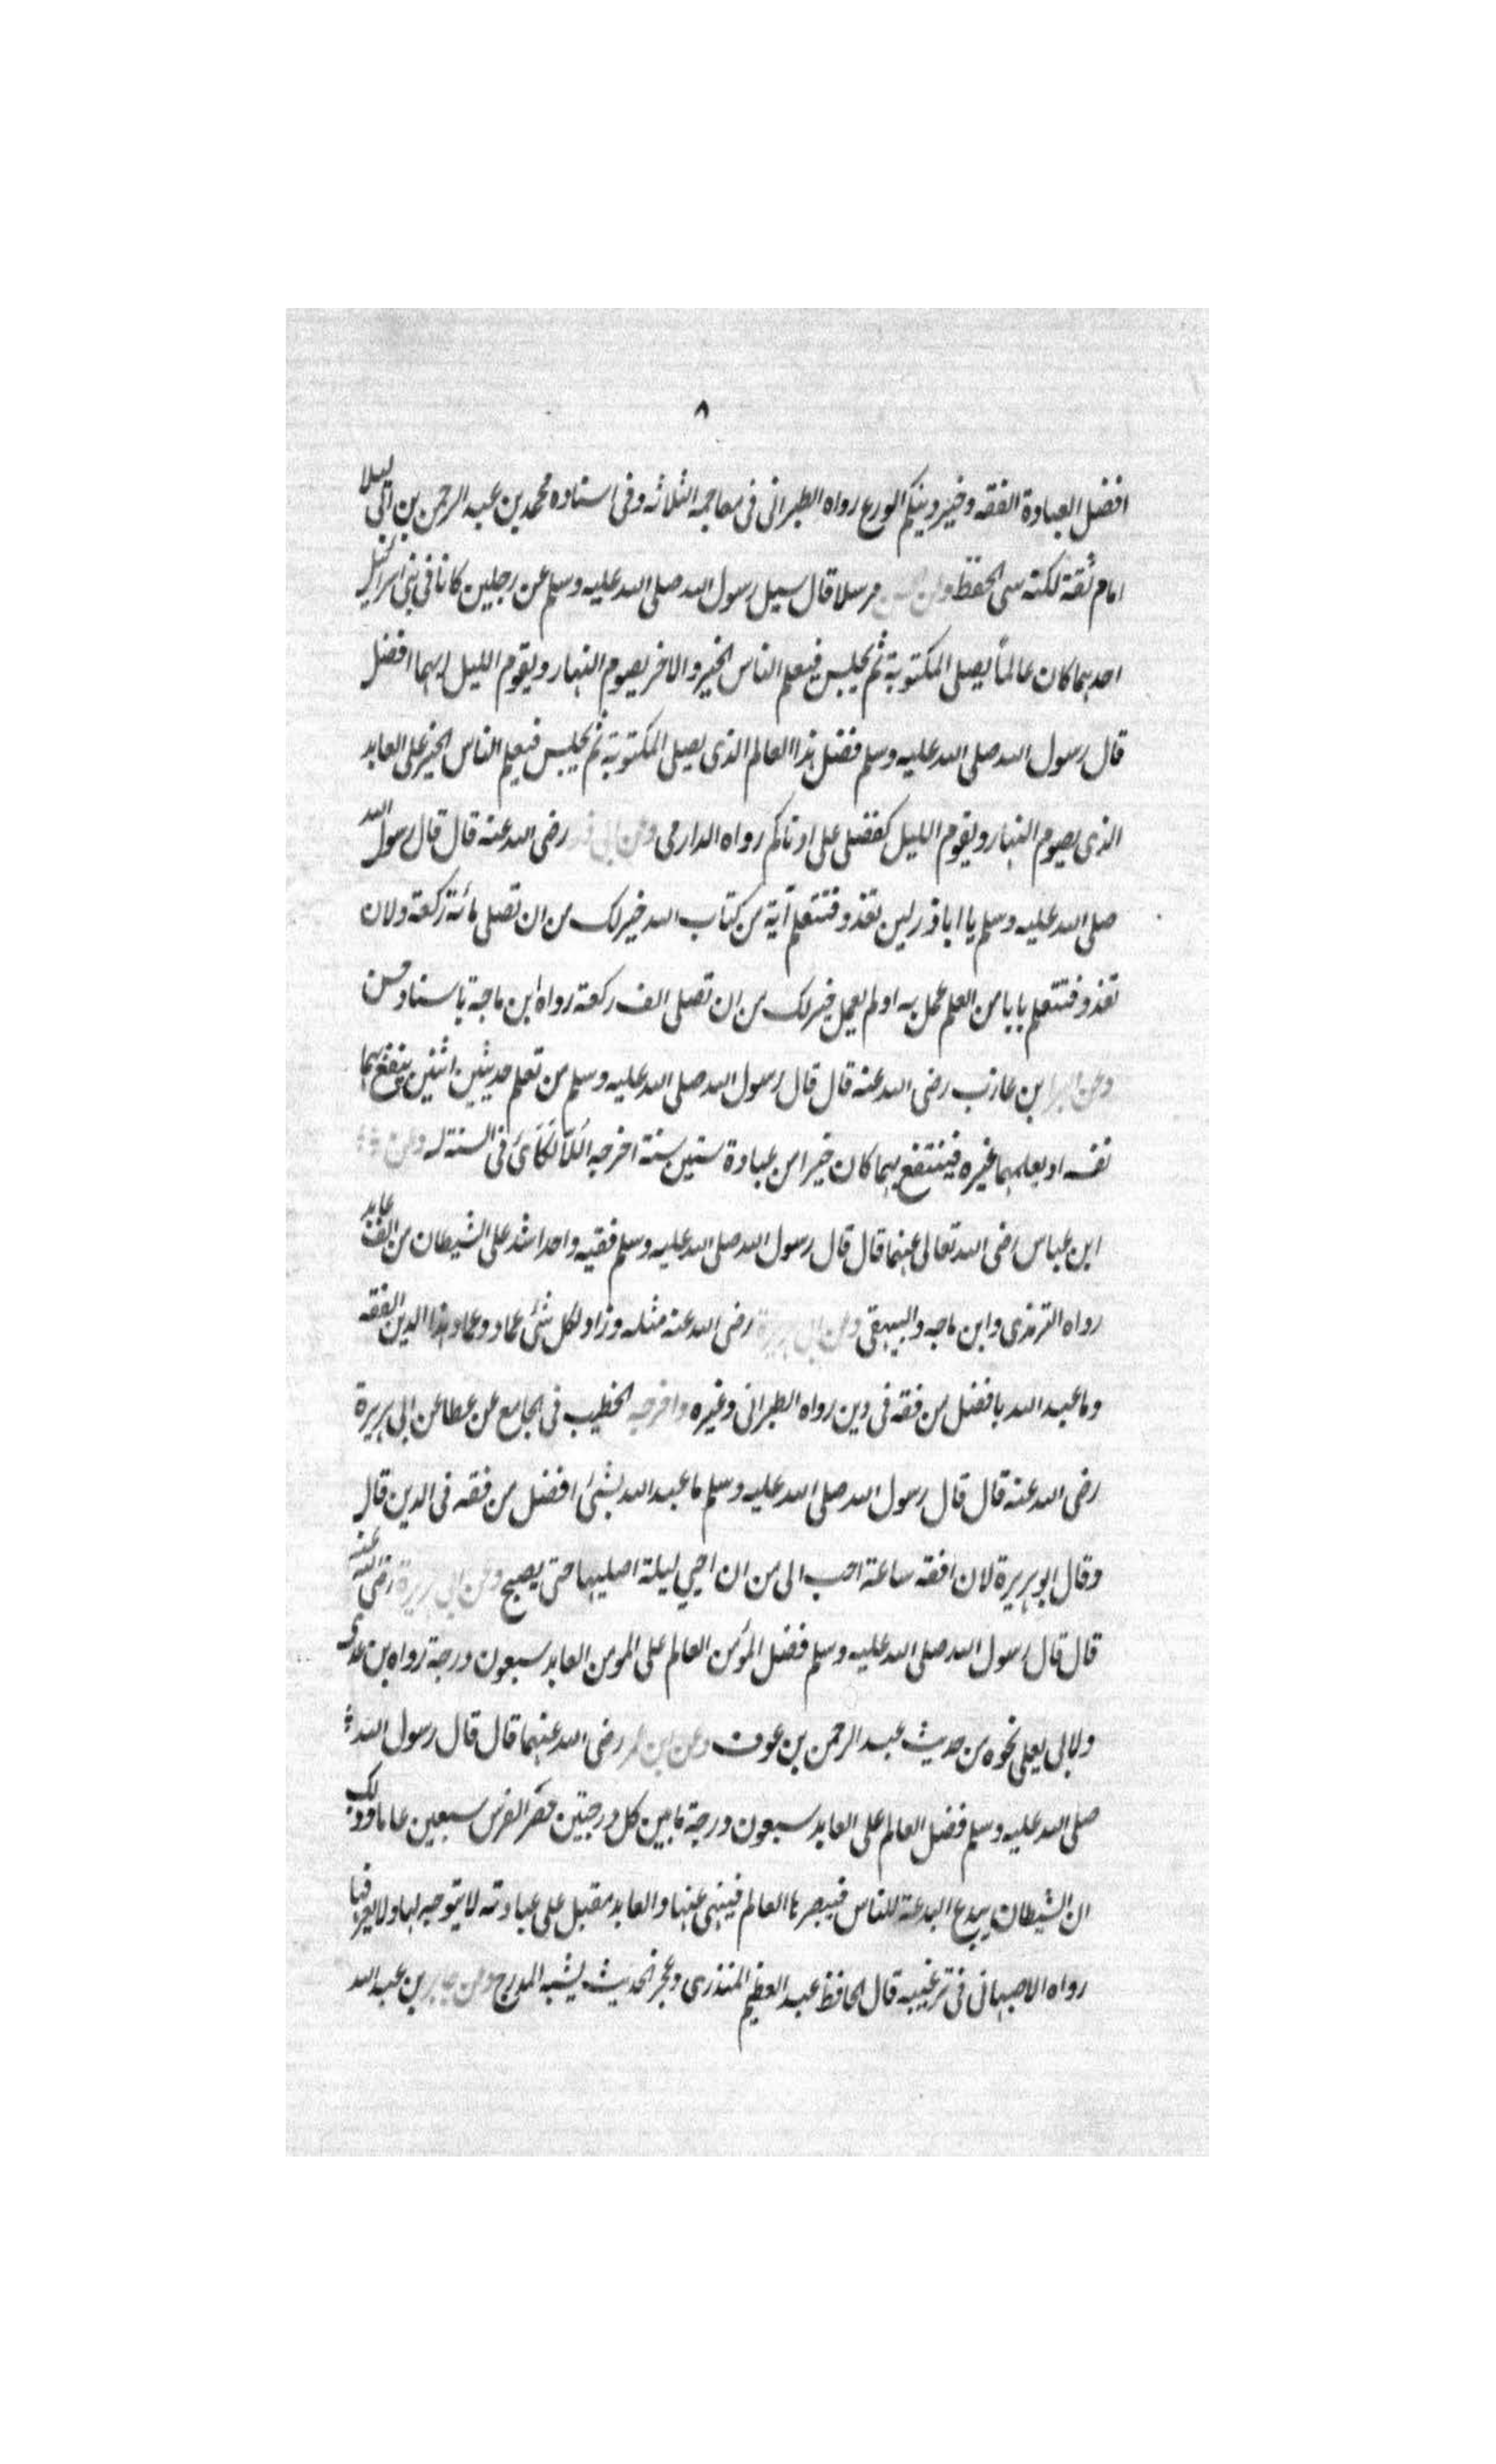 ٨
افضل العبادة الفقه وخير دينكم الورع رواه الطبرانى فى معاجمه الثلاثه وفى اسناده محمد بن عبد الرحمن بن ابى ليلا
امام ثقة لكنه سى الحفظ وعن مرسلا قال سيل رسول الله صلى الله عليه وسلم عن رجلين كانا فى بنى اسرائيل
احدهما كان عالماً يصلى المكتوبة ثم يجلس فيعلم الناس الخير والاخر يصوم النهار ويقوم الليل ايهما افضل
قال رسول الله صلى الله عليه وسلم فضل هذا العالم الذى يصلى المكتوبة ثم يجلس فيعلم الناس الخير على العابد
الذى يصوم النهار ويقوم الليل كفضلى على ادناكم رواه الدارمى وعن ابى ذر رضى الله عنه قال قال رسول الله
صلى الله عليه وسلم يا اباذر لين تغدو فتتعلم آية من كتاب الله خير لك من ان تصلى مائة ركعة ولان
تغدو فتتعلم بابا من العلم عمل به اولم يعمل خير لك من ان تصلى الف ركعة رواه ابن ماجة باسناد حسن
وعن البرا بن عازب رضى الله عنه قال قال رسول الله صلى الله عليه وسلم من تعلم حديثين اثنين ينفع بهما
نفسه او يعلمهما غيره فينتفع بهما كان خيرا من عبادة ستين سنة اخرجه اللالكائ فى السنة له وعن
ابن عباس رضى الله تعالى عنهما قال قال رسول الله صلى الله عليه وسلم فقيه واحد اشد على الشيطان من الف عابد
رواه الترمذى وابن ماجه والبيهقى وعن ابى هريرة رضى الله عنه مثله وزاد لكل شئ عماد وعماد هذا الدين الفقه
وما عبد الله بافضل من فقه فى دين رواه الطبرانى وغيره واخرجه الخطيب فى الجامع عن عطا عن ابى هريرة
رضى الله عنه قال قال رسول الله صلى الله عليه وسلم ما عبد الله بشئ افضل من فقه فى الدين قال
وقال ابو هريرة لان افقه ساعة احب الى من ان احيي ليلة اصليها حتى يصبح وعن ابى هريرة رضى الله عنه
قال قال رسول الله صلى الله عليه وسلم فضل المؤمن العالم على المومن العابد سبعون درجة رواه بن عدى
ولابى يعلى نحوه من حديث عبد الرحمن بن عوف وعن ابن عمر رضى الله عنهما قال قال رسول الله
صلى الله عليه وسلم فضل العالم على العابد سبعون درجة ما بين كل درجتين حضر الفرس سبعين عاما وذلك
ان الشيطان يبدع البدعة للناس فيبصر بها العالم فينهى عنها والعابد مقبل على عبادته لا يتوجه لها ولا يعرفها
رواه الاصبهانى فى ترغيبه قال الحافظ عبد العظيم المنذرى وعجز الحديث يشبه المدرج وعن جابر بن عبد الله